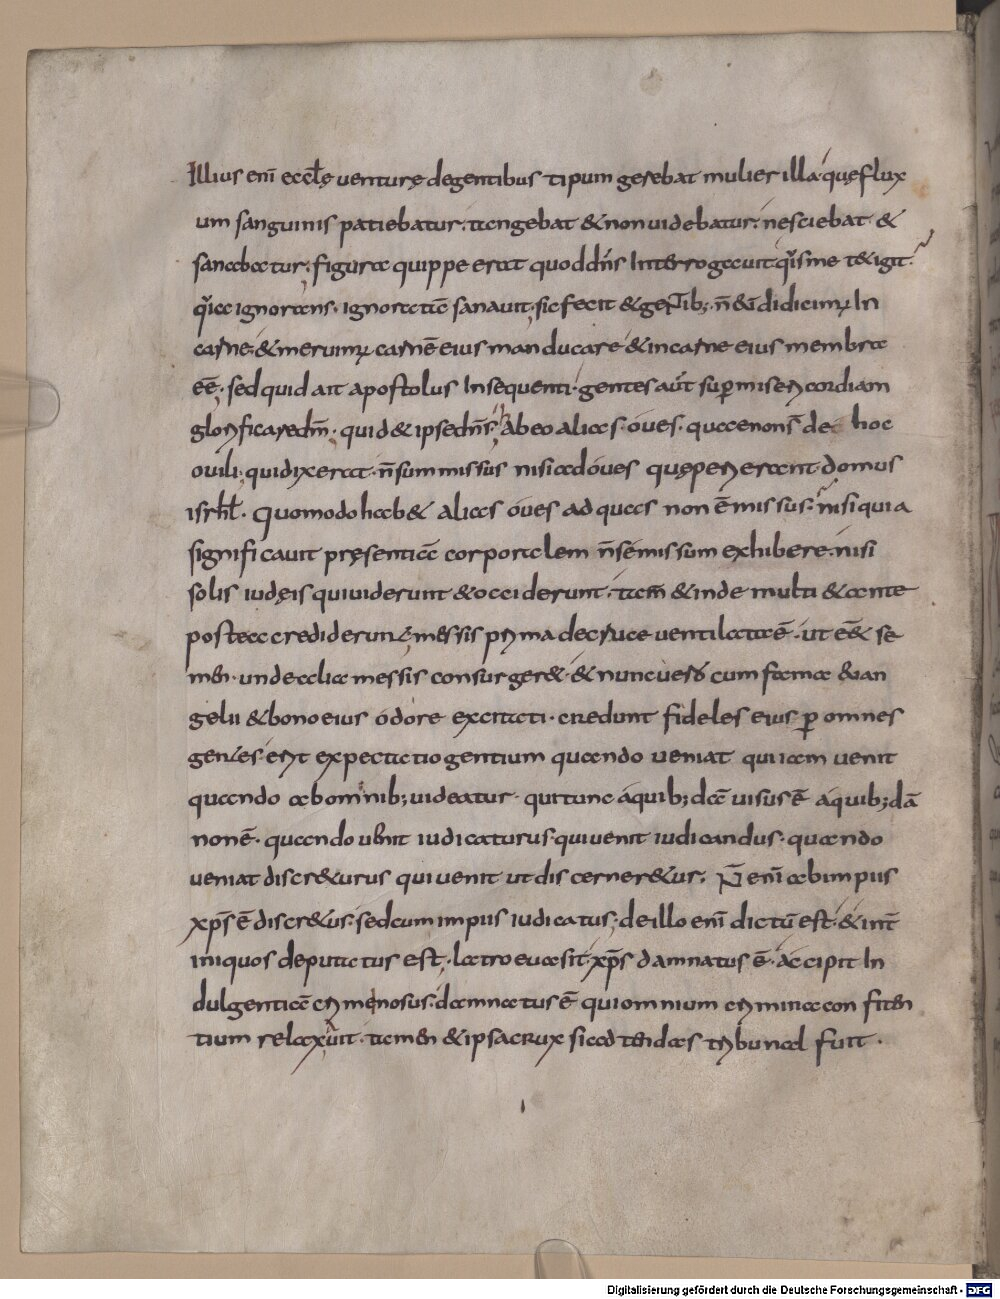 Illius enī ecctę venturę degentibus tipum gerebat mulier illa quę flux
um sanguinis patiebatur. tangebat & non uidebatur. nesciebat &
sanabatur. figurata quippe erat quod dn̄s Interrogauit q'sme t&igit.
q'a ignorans. ignoratā sanauit. sic fecit & gentib; n̄ eū didicim; In
carne. & meruim; carnē eius manducare & in carne eius membra
eē. sed quid ait apostolus Insequenti. gentes aut sup misericordiam
glorificare dm̄. quid & ipse dn̄s. habeo alias oues. quae non s̄ de hoc
ouili. qui dixerat. n̄ sum missus nisi ad oues quę perierant domus
isrhł. Quomodo hab& alias oues ad quas non ē missus. nisi quia
significauit pręsentiā corporalem n̄ se missum exhibere. nisi
solis iudęis qui uiderunt & occiderunt. tam̄ & inde multi & ante
postea crediderunt. messis prima de cruce uentilata ē. ut eē& se
men. unde alia messis consurger&. & nunc uero cum fama euan
gelii & bono eius odore excitati. credunt fideles eius p omnes
gentes. erit expectatio gentium quando veniat qui iam venit
quando ab omnib; uideatur. qui tunc a quib;dā uisus ē a quib;dā
non ē. quando uenit iudicaturus. qui uenit iudicandus. quando
ueniat discr&urus qui uenit ut discerner&ur. N̄ enī ab impiis
xp̄s ē discr&us. sed cum impiis iudicatus. de illo enī dictū est. & int̄
iniquos deputatus est. latro euasit. xp̄s damnatus ē. accipit In
dulgentiā criminosus. damnatus ē qui omnium crimina confiten
tium relaxauit. tamen & ipsa crux si adtendas tribunal fuit.
Digitalisierung gefördert durch die Deutsche Forschungsgemeinschaft - DFG